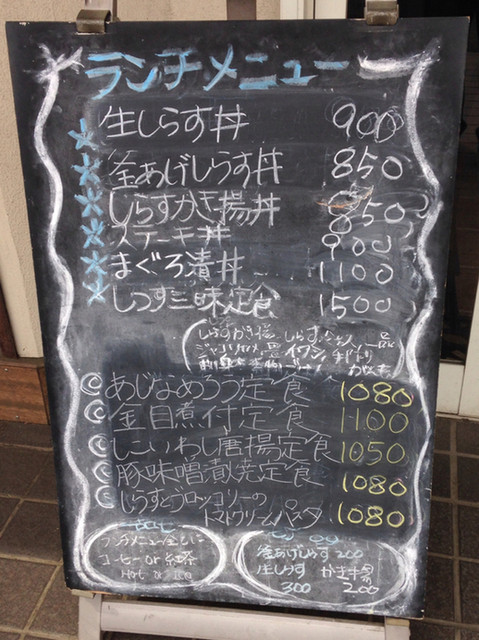 ランチメニュー
生しらす丼 900
釜あげしらす丼 850
しらすかき揚丼 850
ステーキ丼 900
まぐろ漬丼 1100
しらす三昧定食 1500
しらすかき揚
一品
イワシ
あじなめろう定食 1080
金目煮付定食 1100
しこいわし唐揚定食 1050
豚味噌蔵焼定食 1080
しらすとブロッコリーの
トマトクリームパスタ 1080
ランチメニュー全てに
コーヒー or 紅茶
Hot or Ice
釜あげしらす 200
生しらす かき揚
300 200